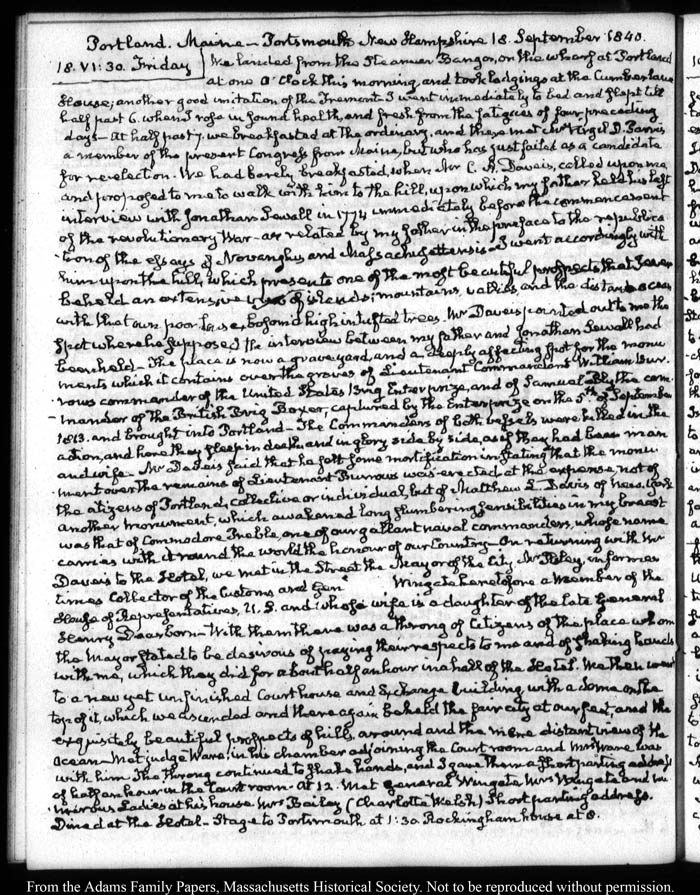 Portland. Maine – Portsmouth New Hampshire 18. September 1840.
18. VI: 30. Friday We landed from the Steamer Bangor, on the wharf at Portland
at one O'Clock this morning, and took lodgings at the Cumberland
House; another good imitation of the Tremont. I went immediately to bed and slept till
half past 6. when I rose in sound health, and fresh from the fatigues of four preceding
days – At half past 7. we breakfasted at the ordinary, and there met Mr Virgil D. Parris,
a member of the present Congress from Maine, but who has just failed as a candidate
for re-election. We had barely breakfasted, when Mr C. S. Daveis, called upon me
and proposed to me to walk with him to the hill, upon which my father held his last
interview with Jonathan Sewall in 1774 immediately before the commencement
of the revolutionary War – as related by my father in the preface to the republica
tion of the essays of Novanglus and Massachusettensis – I went accordingly with
him upon the hill, which presents one of the most beautiful prospects that I ever
beheld an extensive view of islands, mountains, vallies, and the distant ocean
with that our poor house, bosom'd high in tufted trees. Mr Daveis pointed out to me the
spot where he supposed the interview between my father and Jonathan Sewall had
been held – The place is now a graveyard, and a deeply affecting spot for the monu
ments which it contains over the graves of Lieutenant Commandant William Bur-
rows commander of the United States Brig Enterprize, and of Samuel Blythe com
mander of the British Brig Boxer, captured by the Enterprize on the 5th of September
1813. and brought into Portland – The Commanders of both vessels were killed in the
action, and here they sleep in death and in glory side by side, as if they had been man
and wife – Mr Daveis said that he felt some mortification in stating that the monu
ment over the remains of Lieutenant Burrows was erected at the expense, not of
the citizens of Portland, collective or individual, but of Matthew L. Davis of New-York
another monument, which awakened long slumbering sensibilities in my breast
was that of Commodore Preble, one of our gallant naval commanders, whose name
carries with it round the world the honour of our Country – On returning with Mr
Daveis to the Hotel, we met in the Street the Mayor of the City, Mr in former
times Collector of the Customs and Genl Wingate heretofore a Member of the
House of Representatives, U. S. and whose wife is a daughter of the late General
Henry Dearborn – With them there was a throng of Citizens of the place whom
the Mayor stated to be desirous of paying their respects to me and of shaking hands
with me, which they did for about half an hour in a hall of the Hotel. We then went
to a new yet unfinished Court house and Exchange building with a dome on the
top of it, which we ascended and there again beheld the fair city at our feet, and the
exquisitely beautiful prospects of hills around and the more distant view of the
ocean – Met judge Ware, in his chamber adjoining the Court room and Mrs Ware was
with him. The throng continued to shake hands, and I gave them a short parting address
of half an hour in the Court room. At 12. Met General Wingate Mrs Wingate and nu
merous Ladies at his house Mrs Bailey (Charlotte Welsh) Short parting address.
Dined at the Hotel – Stage to Portsmouth at 1:30. Rockingham house at 8.
From the Adams Family Papers, Massachusetts Historical Society. Not to be reproduced without permission.